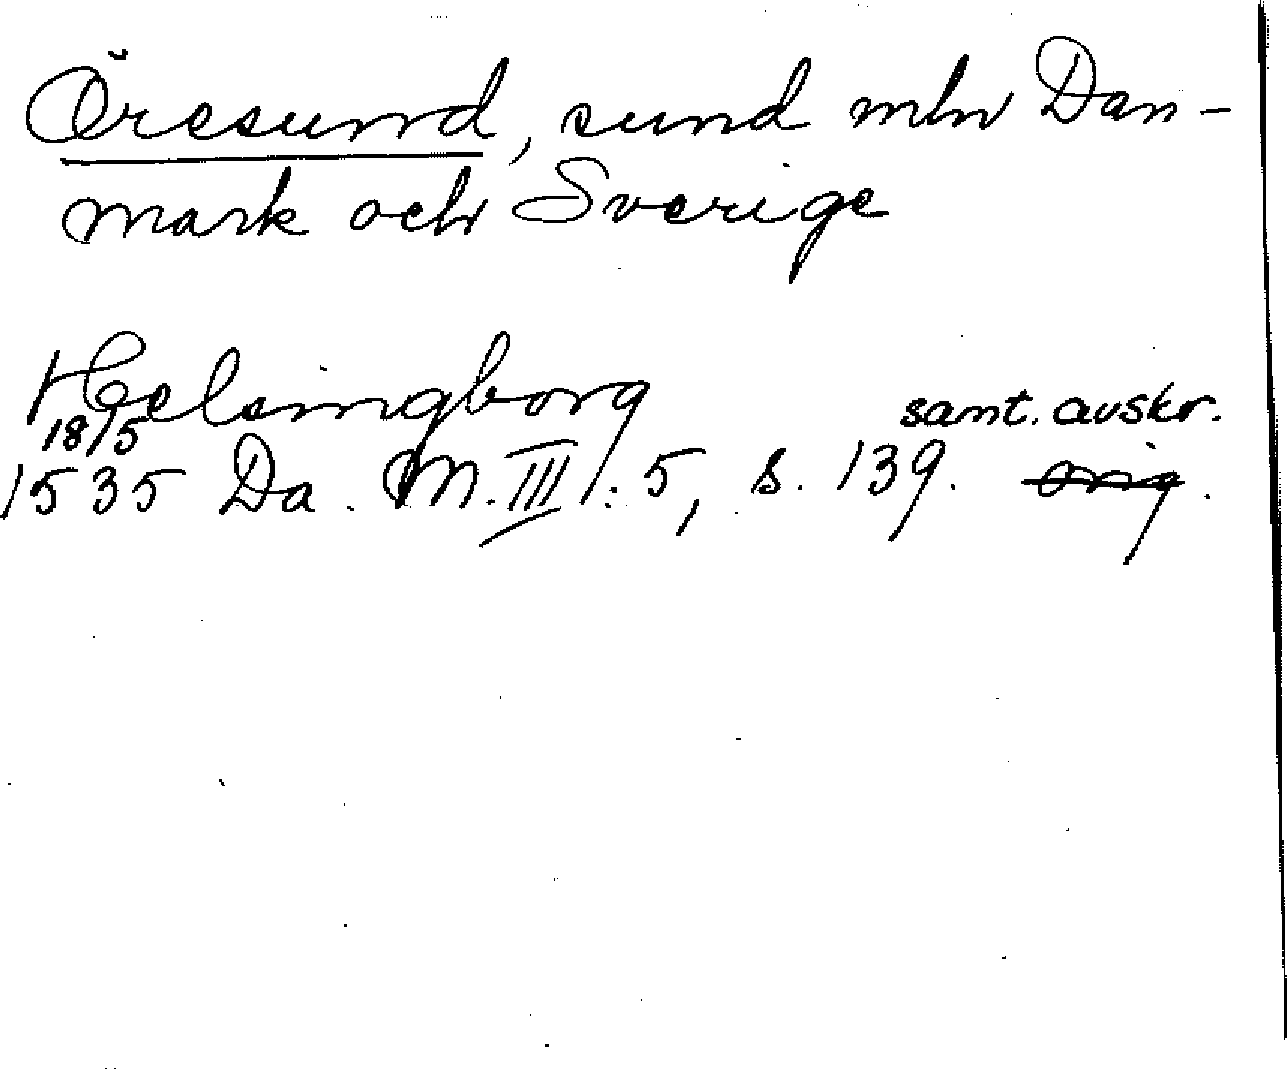 Öresund, sund mln Dan-
mark och Sverige
Helsingborg
18/5 samt. avskr.
1535 Da. M. III: 5, s. 139. orig.